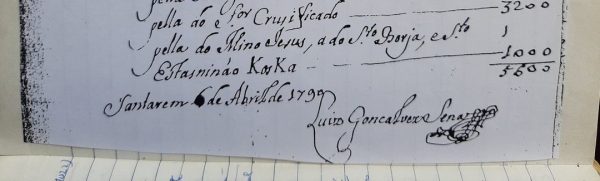 pella do Sor Crusificado 3200
pella do Mino Jesus, a do Sto Borja, e Sto
Estasninão KosKa 1000
5600
Santarem 6 de Abril de 1799
Luiz Goncalvez Sena